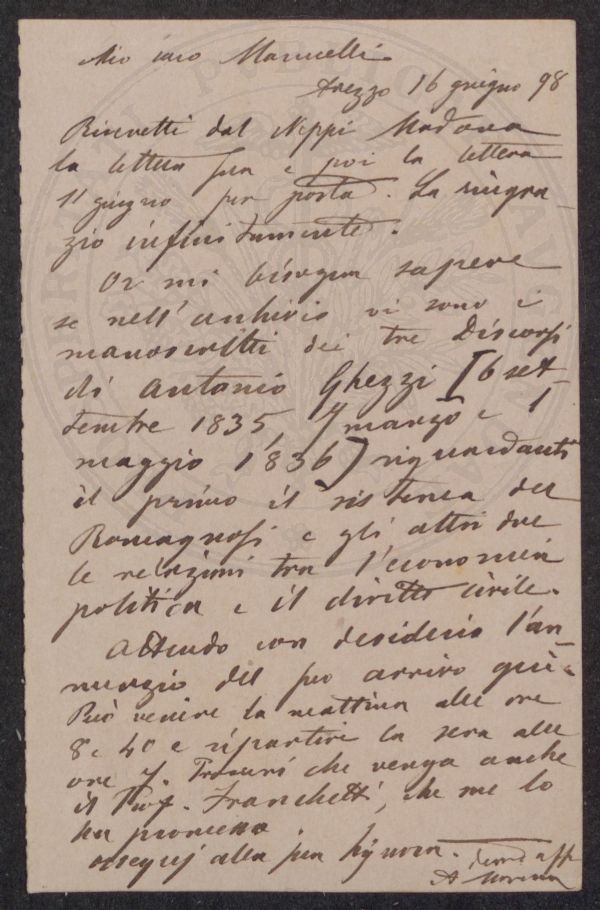 Mio caro Marucelli.
Arezzo 16 giugno 98
Ricevetti dal Neppi Modona
la lettera sua e poi la lettera
11 giugno per posta. La ringra-
zio infinitamente.
Or mi bisogna sapere
se nell'archivio vi sono i
manoscritti dei tre Discorsi
di Antonio Ghezzi [6 set-
tembre 1835, 7 marzo e 1
maggio 1836) riguardanti
il primo il sistema del
Romagnosi e gli altri due
le relazioni tra l'economia
politica e il diritto civile.
Attendo con desiderio l'an-
nunzio del suo arrivo qui.
Può venire la mattina alle ore
8 e 40 e ripartire la sera alle
ore 7. Procuri che venga anche
il Prof. Franchetti, che me lo
ha promesso
ossequj alla sua Signora.
aff